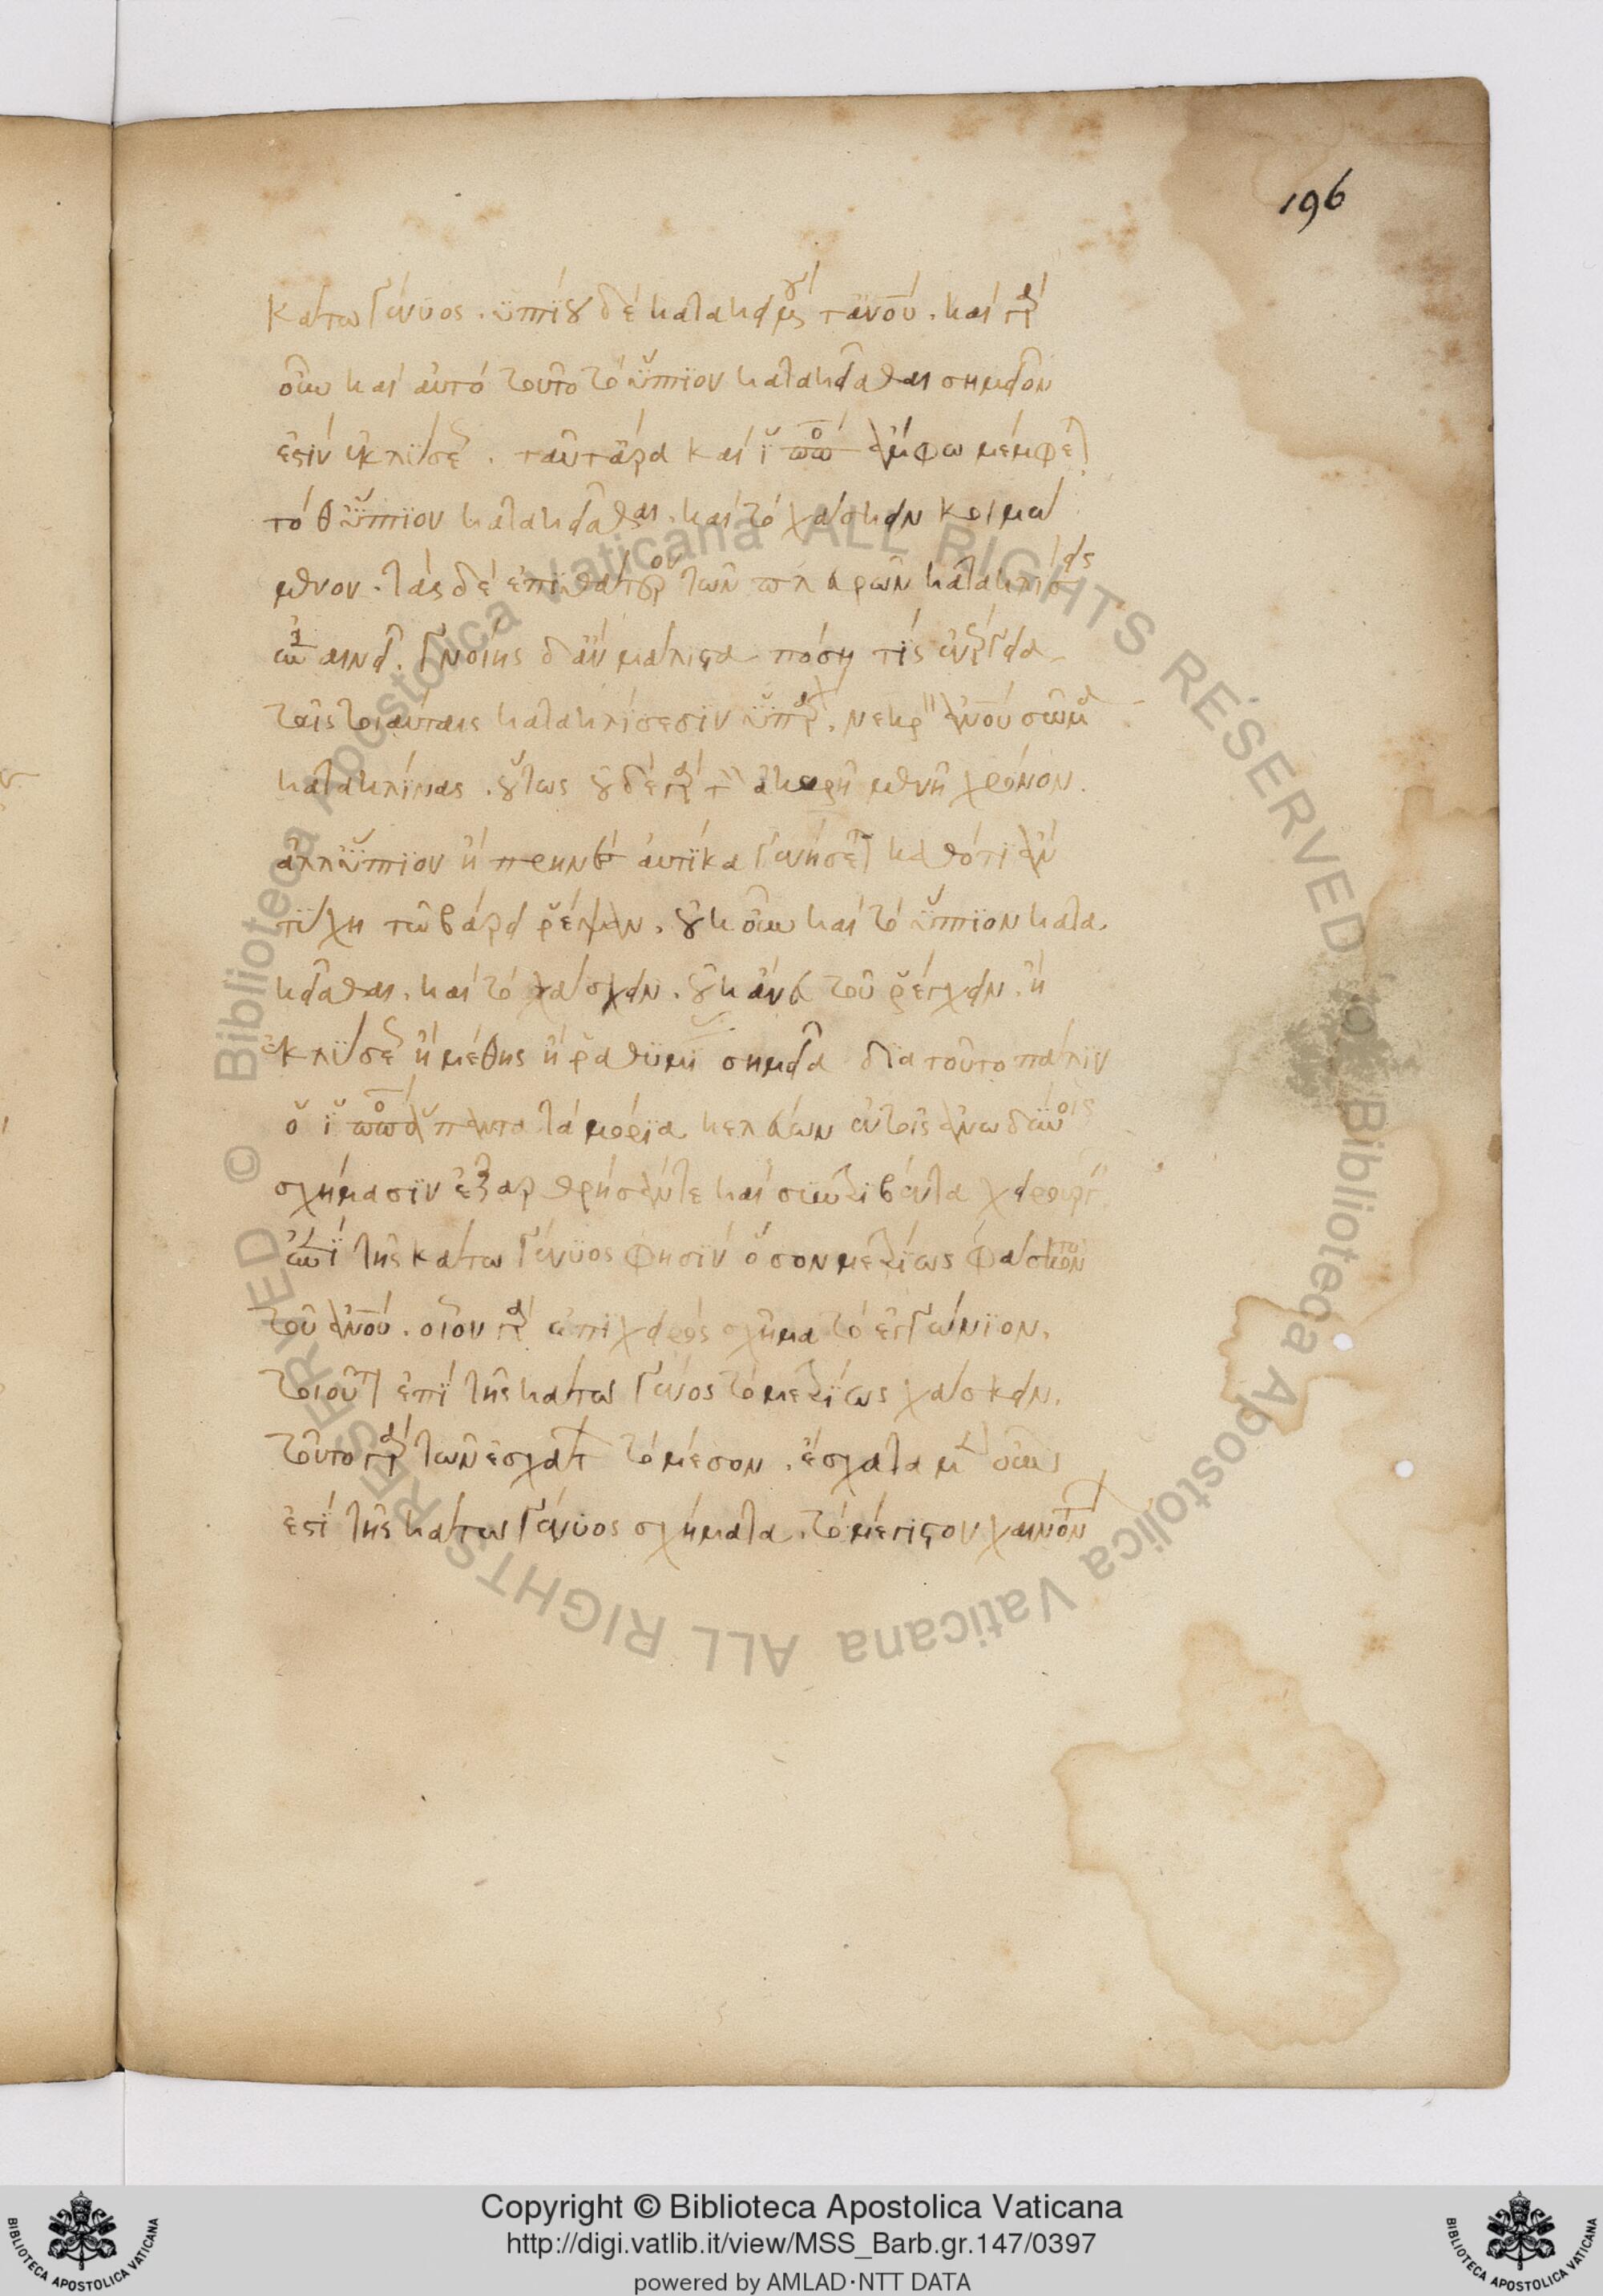 196
κάτω γένυος. ὑπτίου δὲ κατακειμένου τἀνοῦ. καὶ γὰρ
οὖν καὶ αὐτὸ τοῦτο τὸ ὕπτιον κατακεῖσθαι σημεῖον
ἐστὶν ἐκλύσεως. ταῦτ' ἄρα καὶ ἱπποκράτης ἄμφω μέμφεται
τό θ' ὕπτιον κατακεῖσθαι. καὶ τὸ χάσκειν κοιμώ
μενον. τὰς δὲ ἐπὶ θάτερον τῶν πλευρῶν κατακλίσεις
ἐπαινεῖ. γνοίης δ' ἂν μάλιστα πόση τίς ἐνέργεια
ταῖς τοιαύταις κατακλίσεσιν ὑπάρχει. νεκροῦ ἀνοῦ σῶμα
κατακλίνας. οὕτως οὐδὲ γὰρ τὸν ἀκαρῆ μενεῖ χρόνον.
ἀλλ' ὕπτιον ἢ πρηνὲς αὐτίκα γενήσεται καθότι ἂν
τύχῃ τῷ βάρει ῥέψαν. οὐκοῦν καὶ τὸ ὕπτιον κατα
κεῖσθαι. καὶ τὸ χάσκειν. οὐκ ἄνευ τοῦ ῥέγχειν. ἢ
ἐκλύσεως ἢ μέθης ἢ ῥαθυμίας σημεῖα διὰ τοῦτο πάλιν
ὁ ἱπποκράτης ἅπαντα τὰ μόρια κελεύων ἐν τοῖς ἀνωδύνοις
σχήμασιν ἐξαρθρήσαντε καὶ συντριβέντα χειρουργεῖν
ἐπὶ τῆς κάτω γένυος φησὶν ὅσον μετρίως φάσκοντος
τοῦ ἀνοῦ. οἷον γὰρ ἐπὶ χειρὸς σχῆμα τὸ ἐγγώνιον.
τοιοῦτον ἐπὶ τῆς κάτω γένυος τὸ μετρίως χάσκειν.
τοῦτο γὰρ τῶν ἐσχάτων τὸ μέσον. ἔσχατα μὲν οὖν
ἐστὶ τῆς κάτω γένυος σχήματα. τὸ μέγιστον χαινόντων
Copyright © Biblioteca Apostolica Vaticana
http://digi.vatlib.it/view/MSS_Barb.gr.147/0397
powered by AMLAD·NTT DATA
BIBLIOTECA APOSTOLICA VATICANA
BIBLIOTECA APOSTOLICA VATICANA
© Biblioteca Apostolica Vaticana ALL RIGHTS RESERVED
© Biblioteca Apostolica Vaticana ALL RIGHTS RESERVED